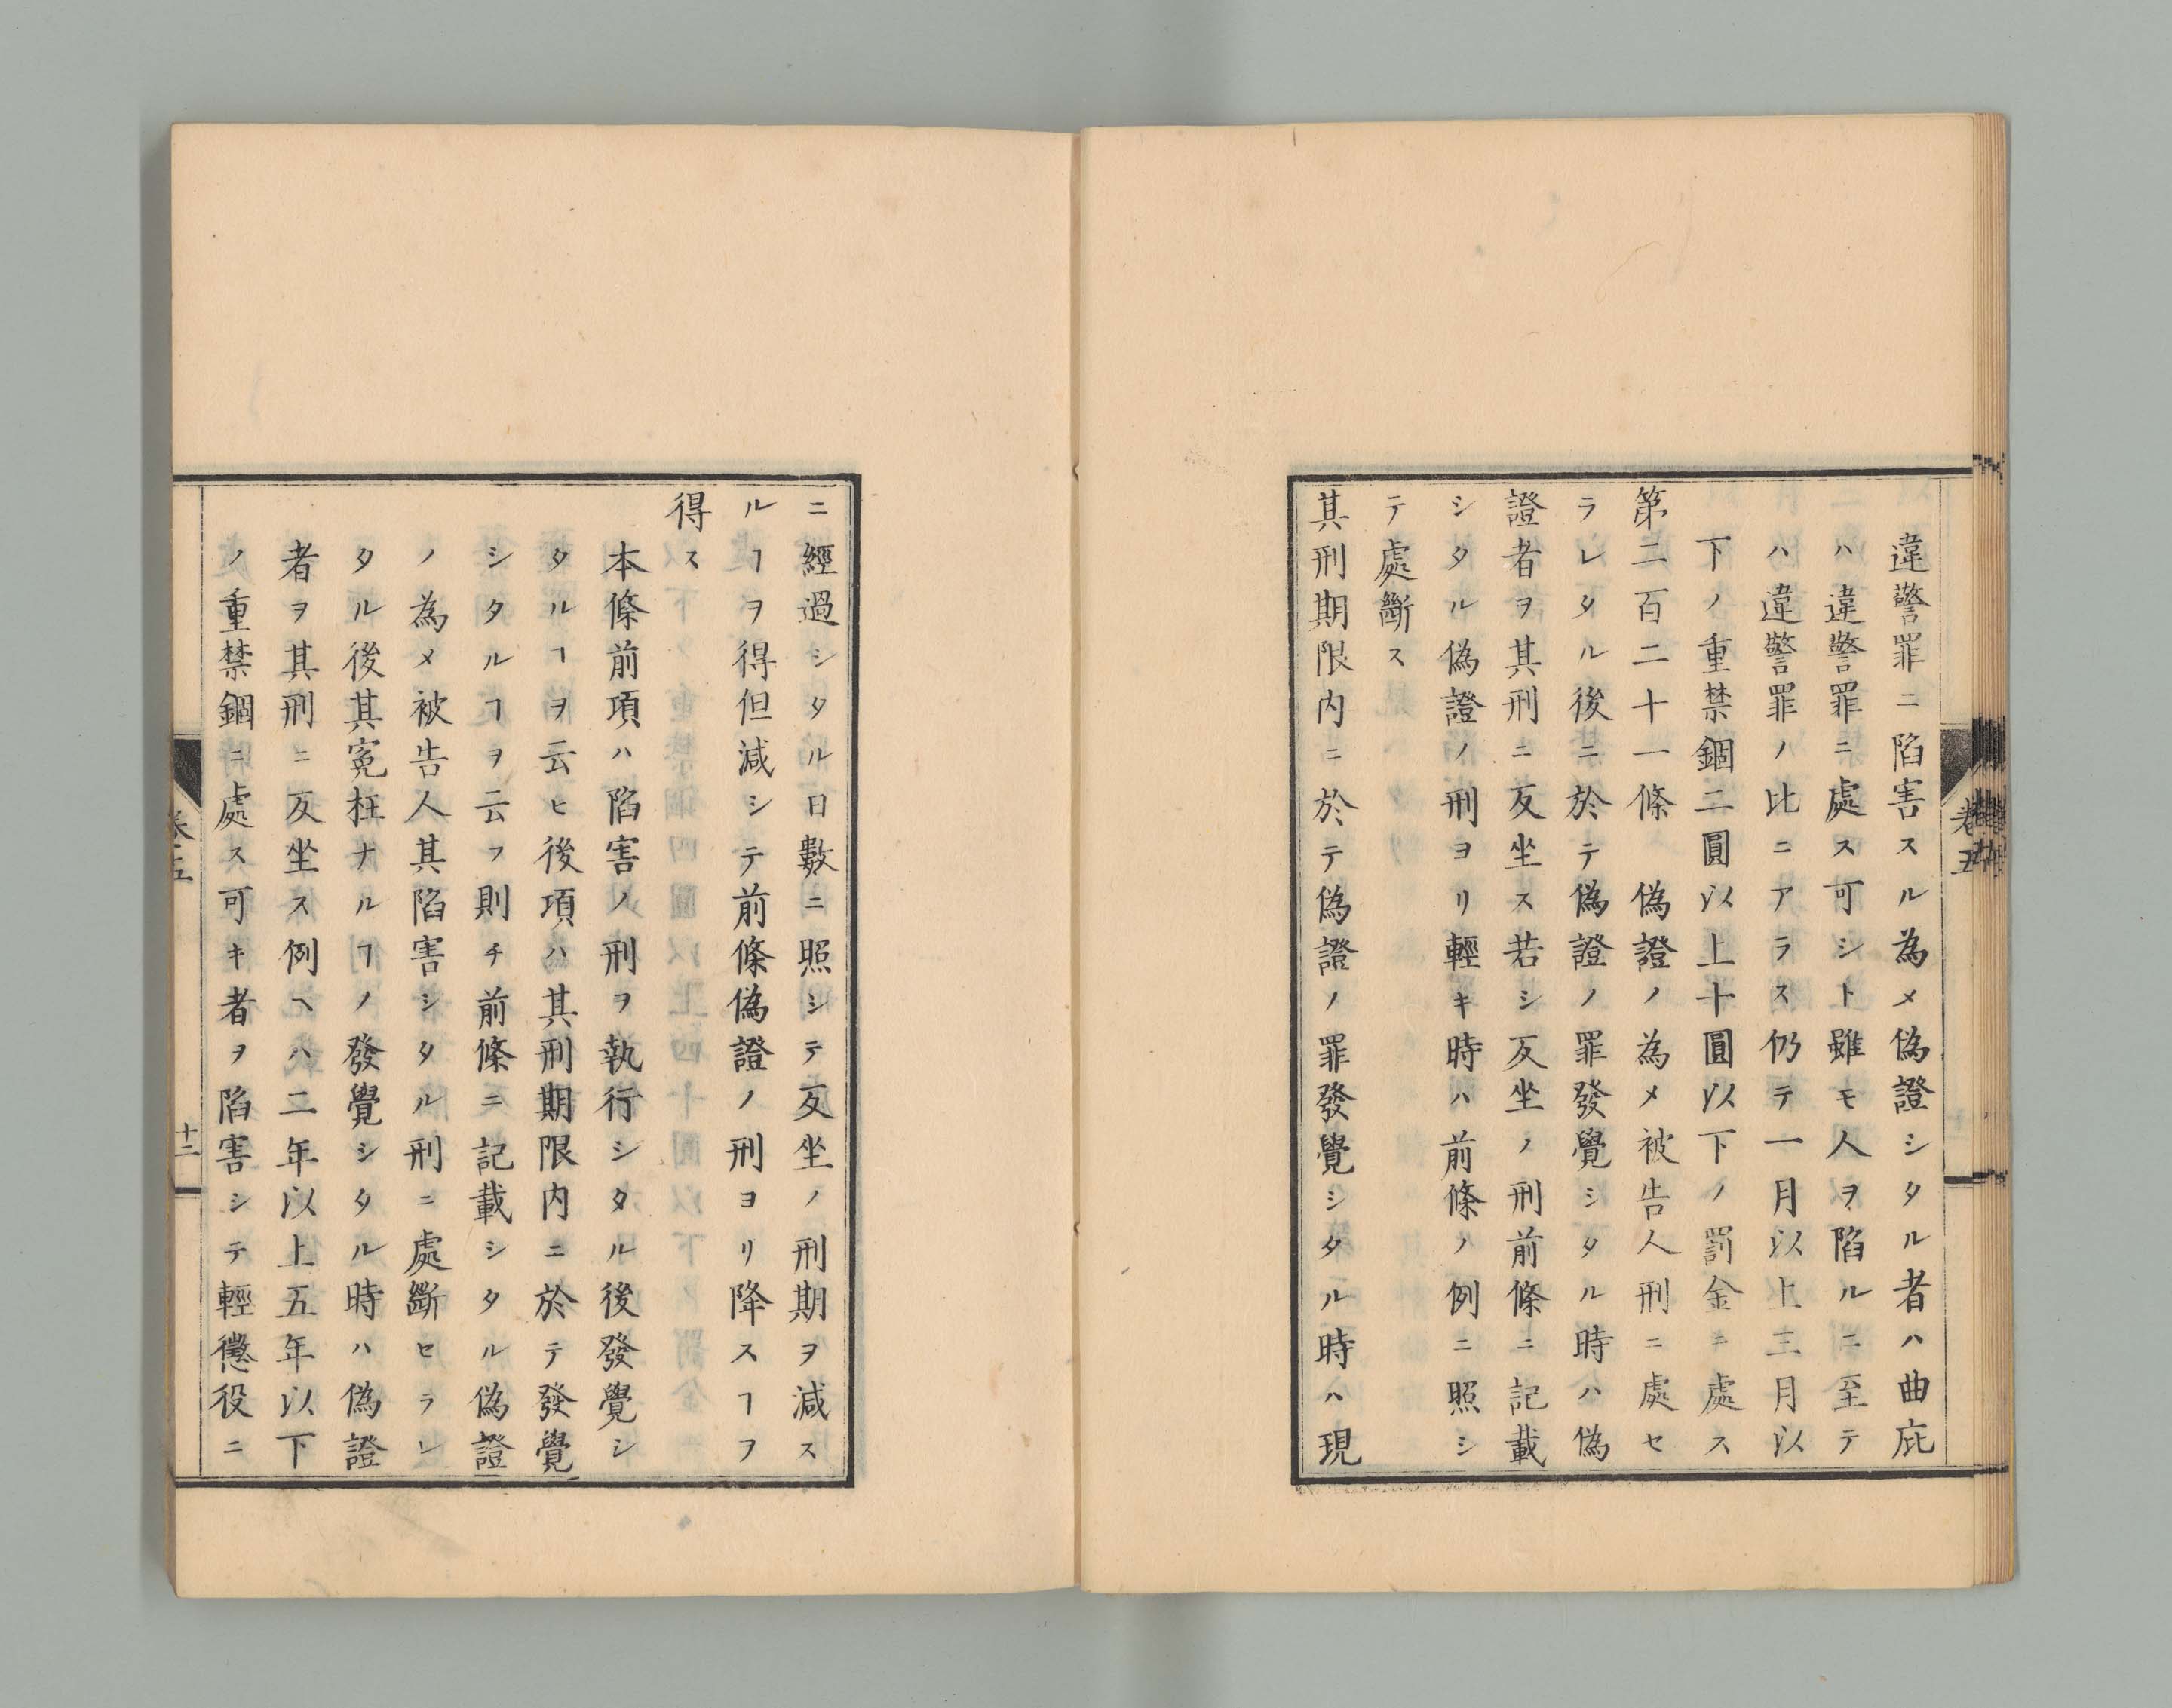 違警罪ニ陷害スル為メ偽證シタル者ハ曲庇
ハ違警罪ニ處ス可シト雖モ人ヲ陷ルニ至テ
ハ違警罪ノ比ニアラス仍テ一月以上三月以
下ノ重禁錮二圓以上十圓以下ノ罰金ニ處ス
第二百二十一條　偽證ノ為メ被告人刑ニ處セ
ラレタル後ニ於テ偽證ノ罪發覺シタル時ハ偽
證者ヲ其刑ニ反坐ス若シ反坐ノ刑前條ニ記載
シタル偽證ノ刑ヨリ輕キ時ハ前條ノ例ニ照シ
テ處斷ス
其刑期限内ニ於テ偽證ノ罪發覺シタル時ハ現
卷五
ニ經過シタル日數ニ照シテ反坐ノ刑期ヲ減ス
ルヿヲ得但減シテ前條偽證ノ刑ヨリ降スヿヲ
得ス
本條前項ハ陷害ノ刑ヲ執行シタル後發覺シ
タルヿヲ云ヒ後項ハ其刑期限内ニ於テ發覺
シタルヿヲ云フ則チ前條ニ記載シタル偽證
ノ為メ被告人其陷害シタル刑ニ處斷セラレ
タル後其冤枉ナルヿノ發覺シタル時ハ偽證
者ヲ其刑ニ反坐ス例ヘハ二年以上五年以下
ノ重禁錮ニ處ス可キ者ヲ陷害シテ輕懲役ニ
卷五
十二